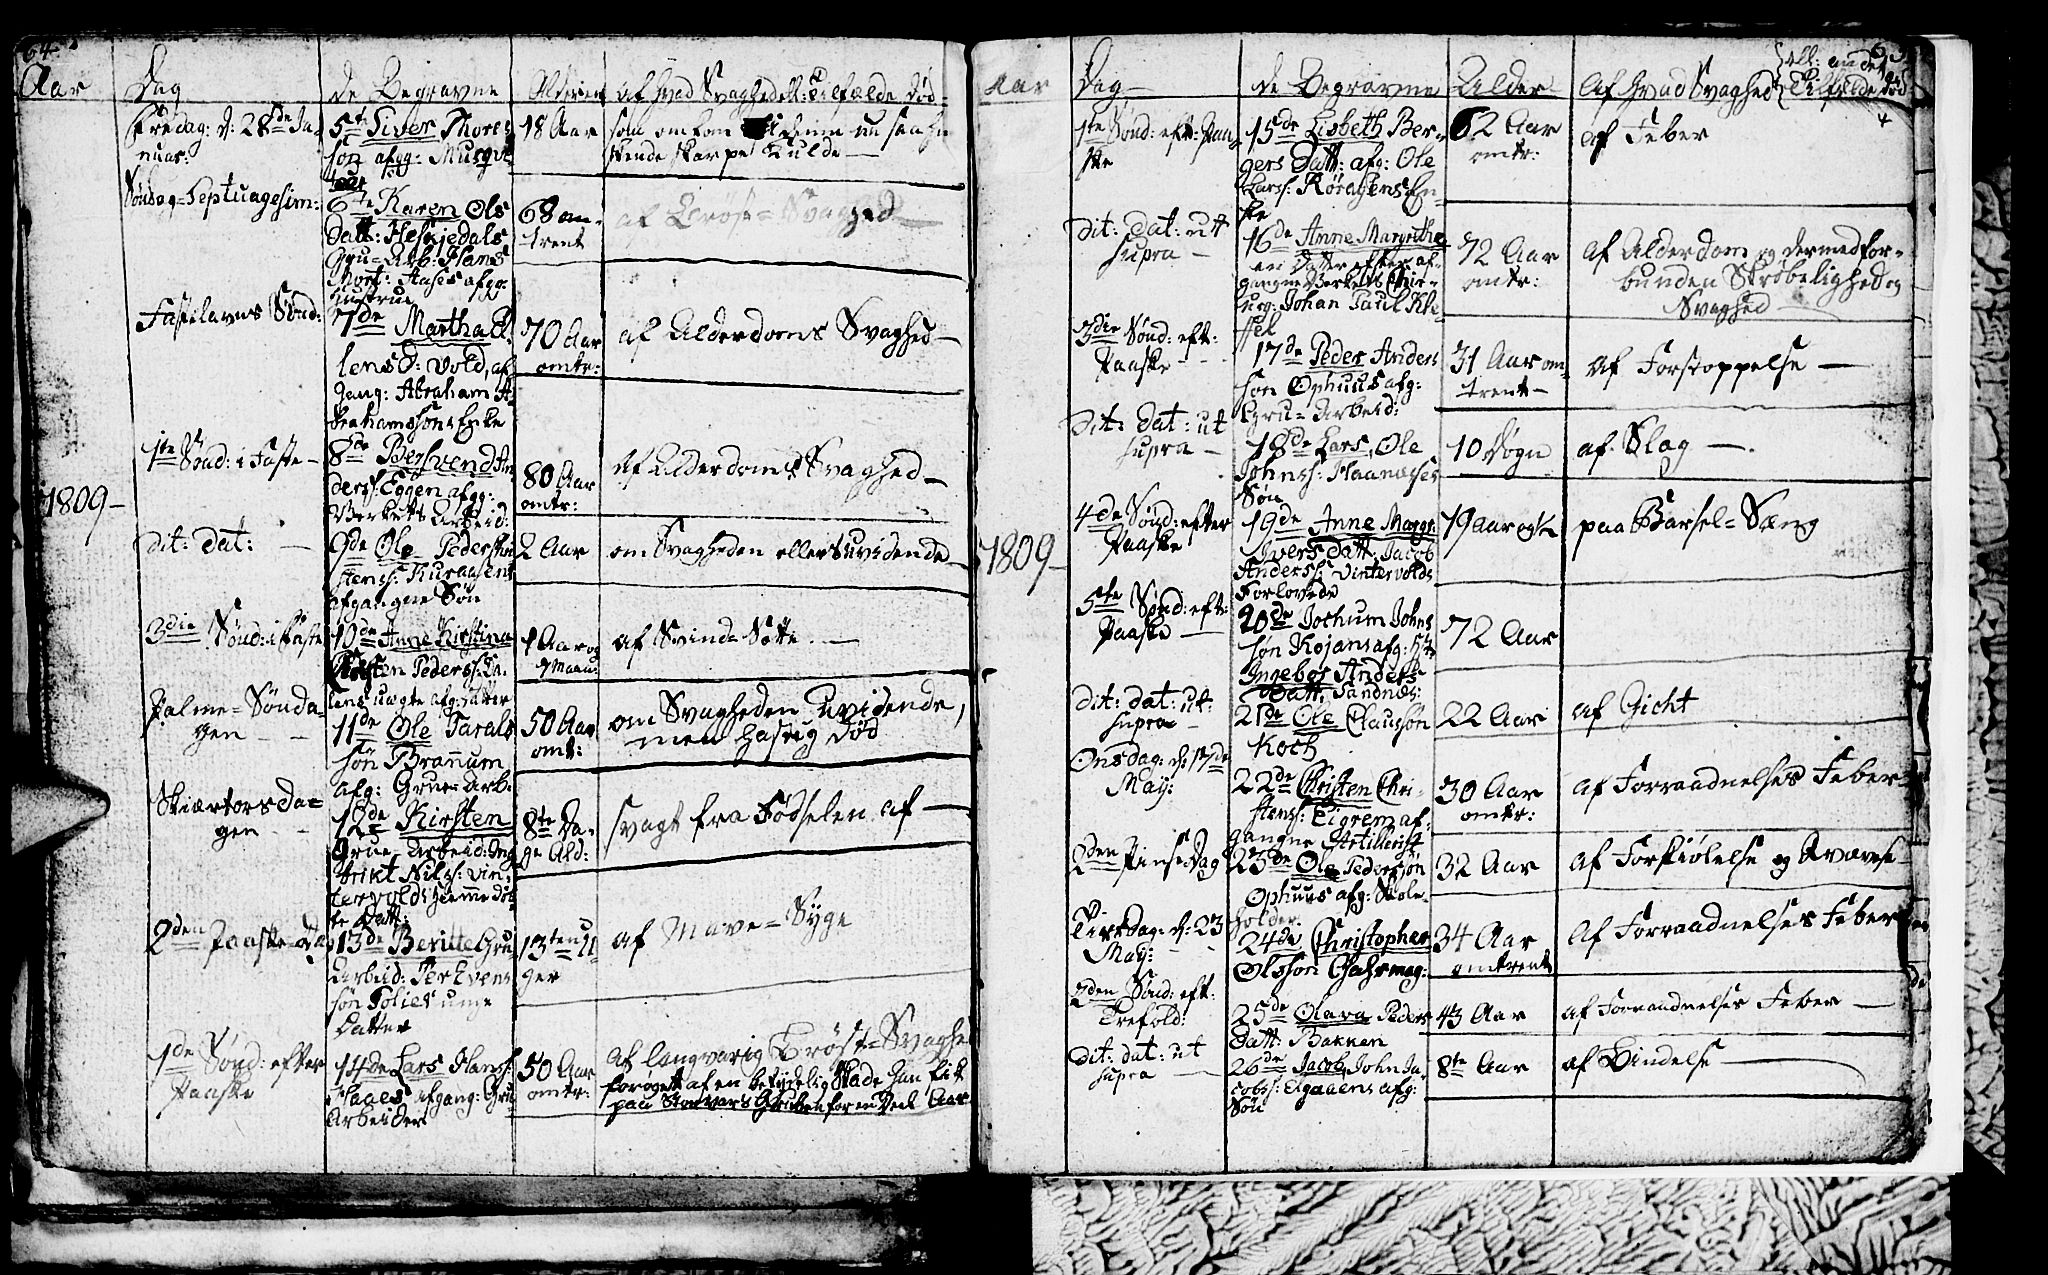 64
Aar
Dag
de Begravne
Alderen
af hvad Svaghed ell: Tilfælde død
Fredag: d: 28de Ja-
nuar:
5te Siver Thores
søn afgg: Musqve
teur
18 Aar
som omkom i denne
skarpe Kulde —
Søndag Septuagesim:
6te Karen Ols
Datt: Heskjedals
Gru-Arb: Hans
Mort: Aases afgg:
Hustrue
68 om-
trent
af Brøst-Svaghed
Fastelavns Sønd:
7de Martha El
lens D: Vold, af
gang: Abraham A
brahamssøns Enke
70 Aar
omtr:
af Alderdoms Svaghed —
1ste Sønd: i Faste —
8de Bersvend An
derss: Eggen afgg:
Verkets Arbeid:
80 Aar
omtr:
af Alderdoms Svaghed —
1809 —
Dit: Dat: —
9de Ole Peder
stens: Kuraasens
afgangne Søn
2 Aar
om Svagheden eller uvidende —
3die Sønd: i Faste
10de Anne Kirstina
Christen Pederss: Da-
lens uægte afg: Datter
1 Aar og
Maan:
af Svind-Sotte. —
Palme-Sønda-
gen —
11de Ole Taralds
søn Branum
afg: Grue-Arb:
50 Aar
omt:
om Svagheden uvidende,
men hastig Død
Skiærtorsda-
gen —
12de Kirsten
Grue-Arbeid: Ing
brikt Nilss: Vin-
tervolds hiemmedøb-
te Datt:
8te Da-
ge Ald:
svagt fra Fødselen af —
2den Paaske-Dag
13de Beritte Gru
Arbeid: Per Evens
søn Folies unge
Datter
13ten U-
ger
af Mave-Syge
1de Sønd: efter
Paaske
14de Lars Hanss:
Aases afgang: Gru-
Arbeider
50 Aar
omtr:
af langvarig Brøst-Svaghe
forøget af en betydelig Skade han fik
paa Storvars Gruben for en Deel Aar
Aar
Dag —
de Begravne
Alder
Af hvad Svaghed ell: andet Tilfælde død
1ste Sønd: eft: Paa-
ske
15de Lisbeth Ber-
gers Datt: afg: Ole
Larss: Røragens En-
ke
62 Aar
omtr:
af Feber
Dit: Dat: ut
supra —
16de Anne Margrethe
en Datter efter af-
gangne Verkets Chir-
urg: Johan Paul Kle-
ffel
72 Aar
omtr:
af Alderdom og dermed for-
bunden Skrøbelighed og
Svaghed
3die Sønd: eft:
Paaske —
17de Peder Anders
søn Ophuus afg:
Gru-Arbeid:
31 Aar om-
trent —
af Forstoppelse —
Dit: Dat: ut
supra —
18de Lars, Ole
Johnss: Haanæses
Søn
10 Døgn
af Slag —
1809 —
4de Sønd: efter
Paaske
19de Anne Margr:
Ivers Datt. Jacob
Anderss: Vintervolds
Forlovede
19 Aar og
paa Barsel-Sæng
5te Sønd: eft:
Paaske —
20de Jochum Johns
søn Kojans afg:
Ingebor Anders
Datt: Sandnæs:
72 Aar
Dit: Dat: ut:
supra —
21de Ole Claussøn
Koch
22 Aar
af Gicht
Onsdag: d: 17de
May:
22de Christen Chri-
stens: Eigrem af-
gangne Artillerist
30 Aar
omtr:
af Forraadnelses Feber
2den Pinse-Dag
23de Ole Pederssøn
Ophuus afg: Skole-
holder:
32 Aar
af Forkiølelse og
Tirsdag: d: 23
May: —
24de Christopher
Olssøn Gahrmag:
34 Aar
omtrent
af Forraadnelses Feber
2den Sønd: eft:
Trefold:
25de Olava Peders
Datt: Bakken
43 Aar
af Forraadnelses Feber —
Dit: dat: ut
supra —
26de Jacob, John Ja
cobss: Elgaaens afg:
Søn
8te Aar
af Bindelse —